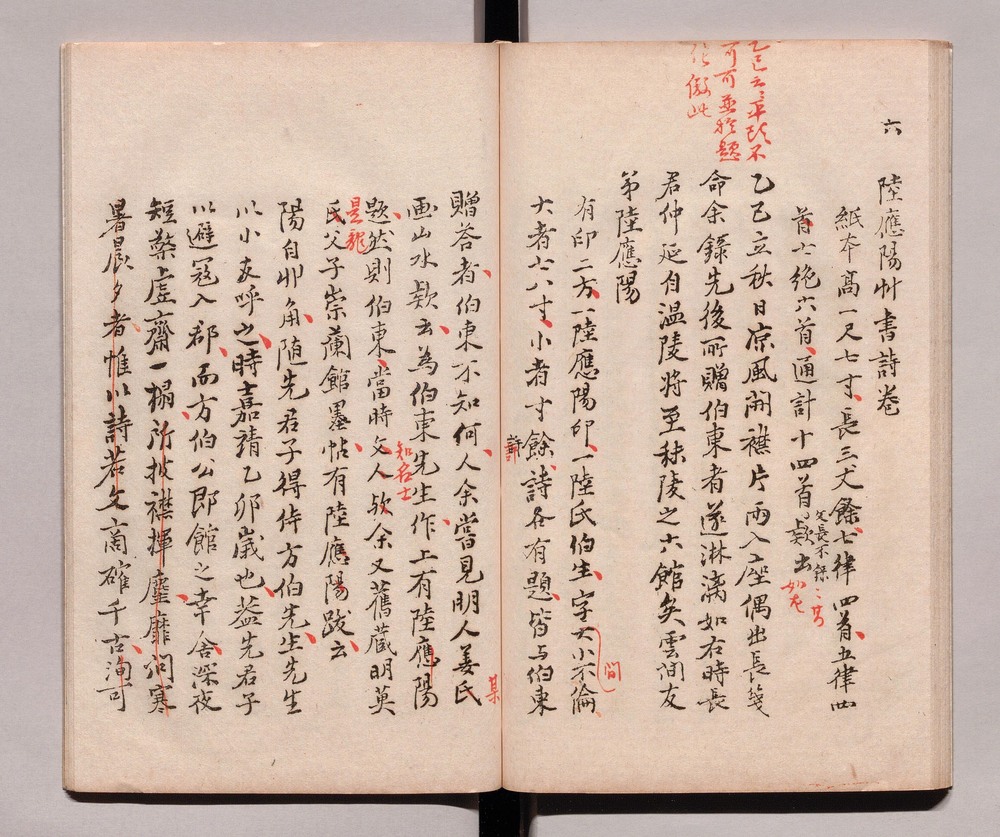 六
陸應陽艸書詩卷
紙本高一尺七寸長三丈餘七律四首五律四
首七絶六首通計十四首文長不錄歀出
如左
乙巳云云
乙巳立秋日凉風開襟片雨入座偶出長箋
命余錄先後所贈伯東者遂淋漓如右時長
君仲延自温陵將至秣陵之六館矣雲間友
弟陸應陽
有印二方一陸應陽印一陸氏伯生字大小不倫
間
大者七八寸小者寸餘詩各有題皆与伯東
詩
贈答者伯東不知何人余嘗見明人姜氏
某
画山水歀云為伯東先生作上有陸應陽
題然則伯東當時文人欤余又舊蔵明英
知名士
氏父子崇蘭館墨帖有陸應陽跋云
是龍
陽自丱角随先君子得侍方伯先生先生
以小友呼之時嘉靖乙卯嵗也盖先君子
以避冦入郡而方伯公即館之幸舍深夜
短檠虚齋一榻所披襟揮麈靡間寒
暑晨夕者惟以詩若文商確千古洵可